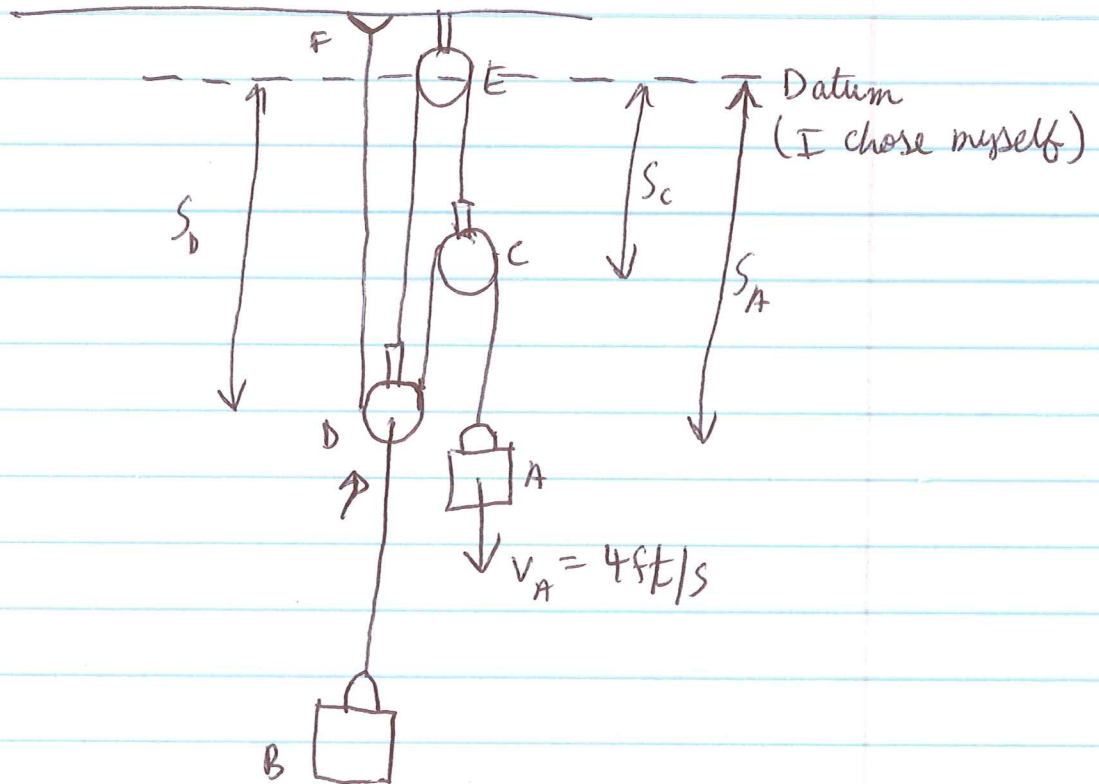 F
E
Datum
(I chose myself)
S_D
S_C
C
S_A
D
A
V_A = 4ft/s
B